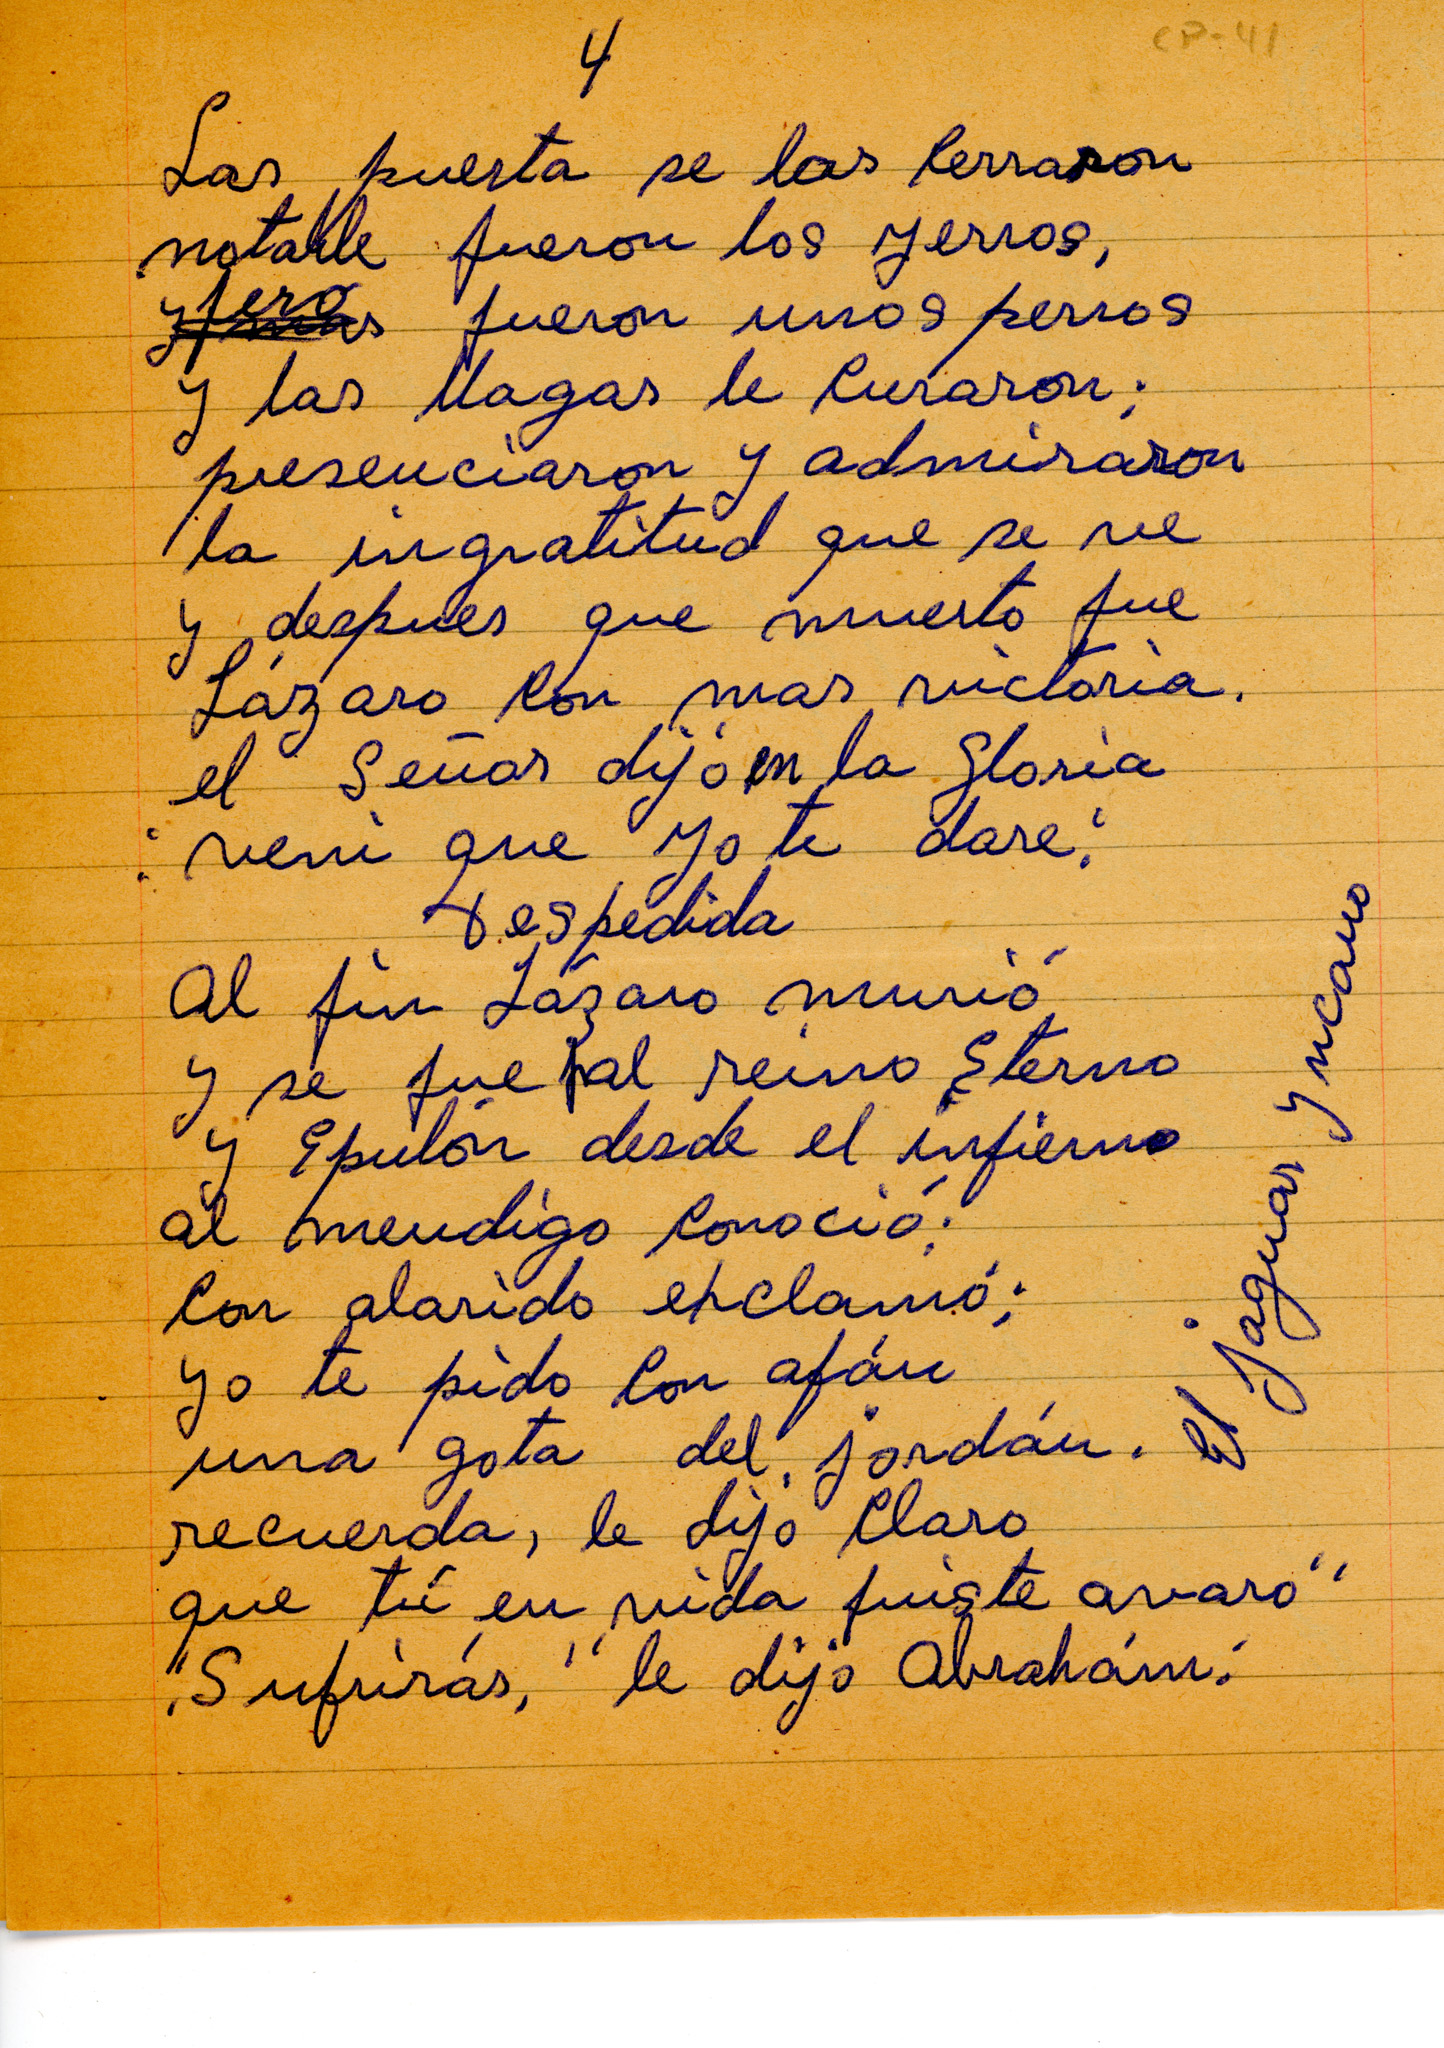 CP-41
4
Las puerta se las cerraron
notable fueron los yerros,
pero fueron unos perros
y las llagas le curaron;
presenciaron y admiraron
la ingratitud que se ve
y despues que muerto fue
Lázaro con mas victoria.
el Señor dijo en la Gloria
¡veni que yo te dare!
Despedida
Al fin Lázaro murió
y se fue pal reino Eterno
y Epulón desde el infierno
al mendigo conoció;
con alarido exclamó;
yo te pido con afán
una gota del jordán.
recuerda, le dijo claro
que tú en vida fuiste avaro"
"Sufrirás," le dijo Abrahám.
El jaguar y ncano